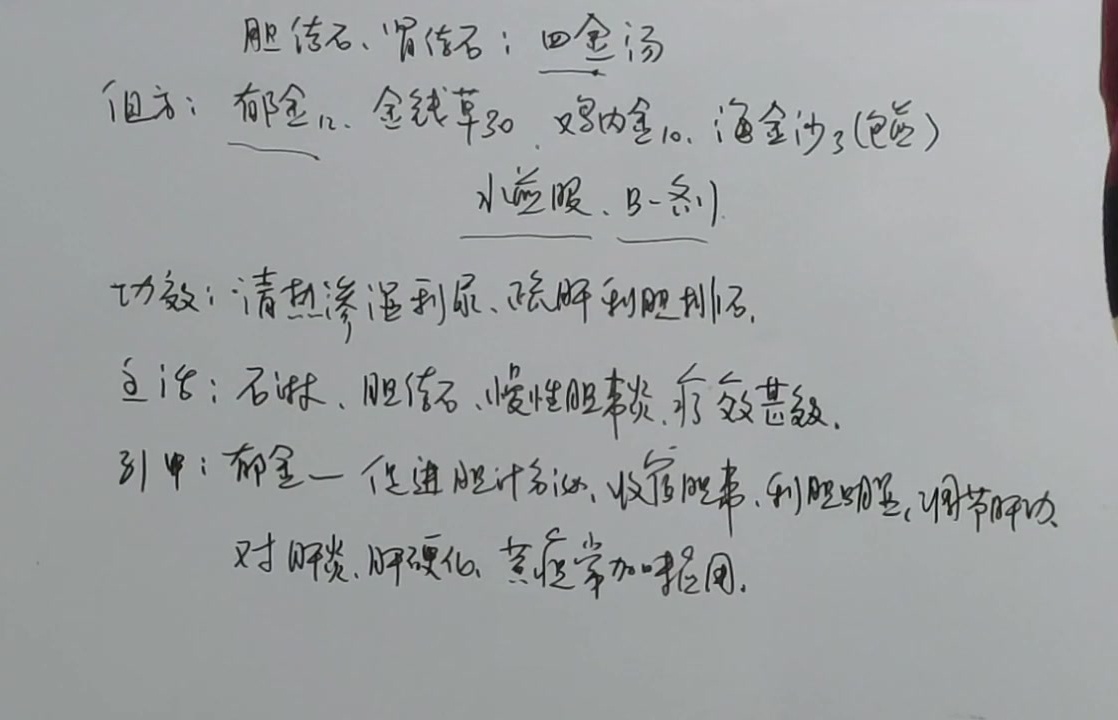 胆结石、肾结石：四金汤
组方：郁金12、金钱草30、鸡内金10、海金沙3(包煎)
水煎服、日一剂
功效：清热渗湿利尿、疏肝利胆排石。
主治：石淋、胆结石、慢性胆囊炎、疗效甚多.
引申：郁金一促进胆汁分泌、收缩胆囊、利胆明显，调节肝功、
对肝炎、肝硬化、黄疸常加味控用.